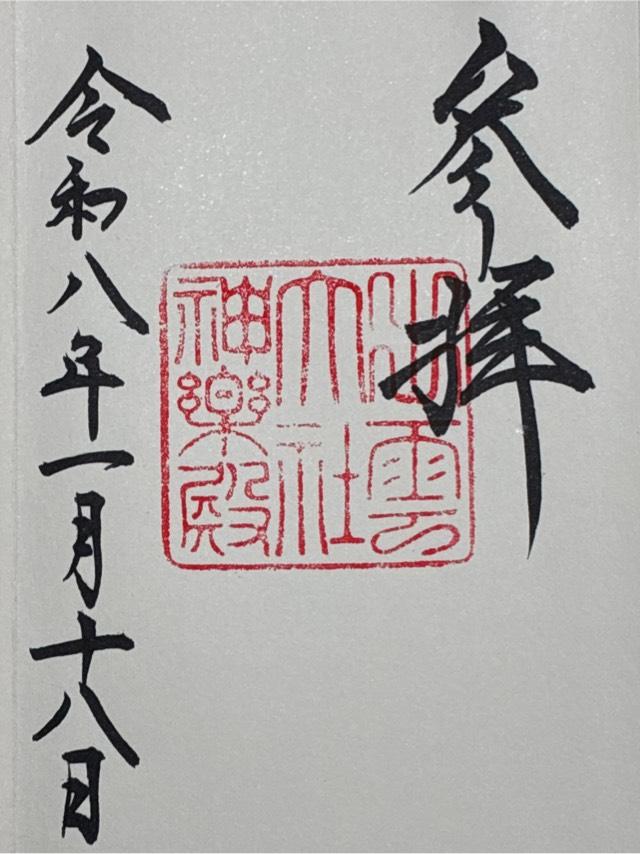 参拝
出雲
大社
神楽殿
令和八年一月十八日